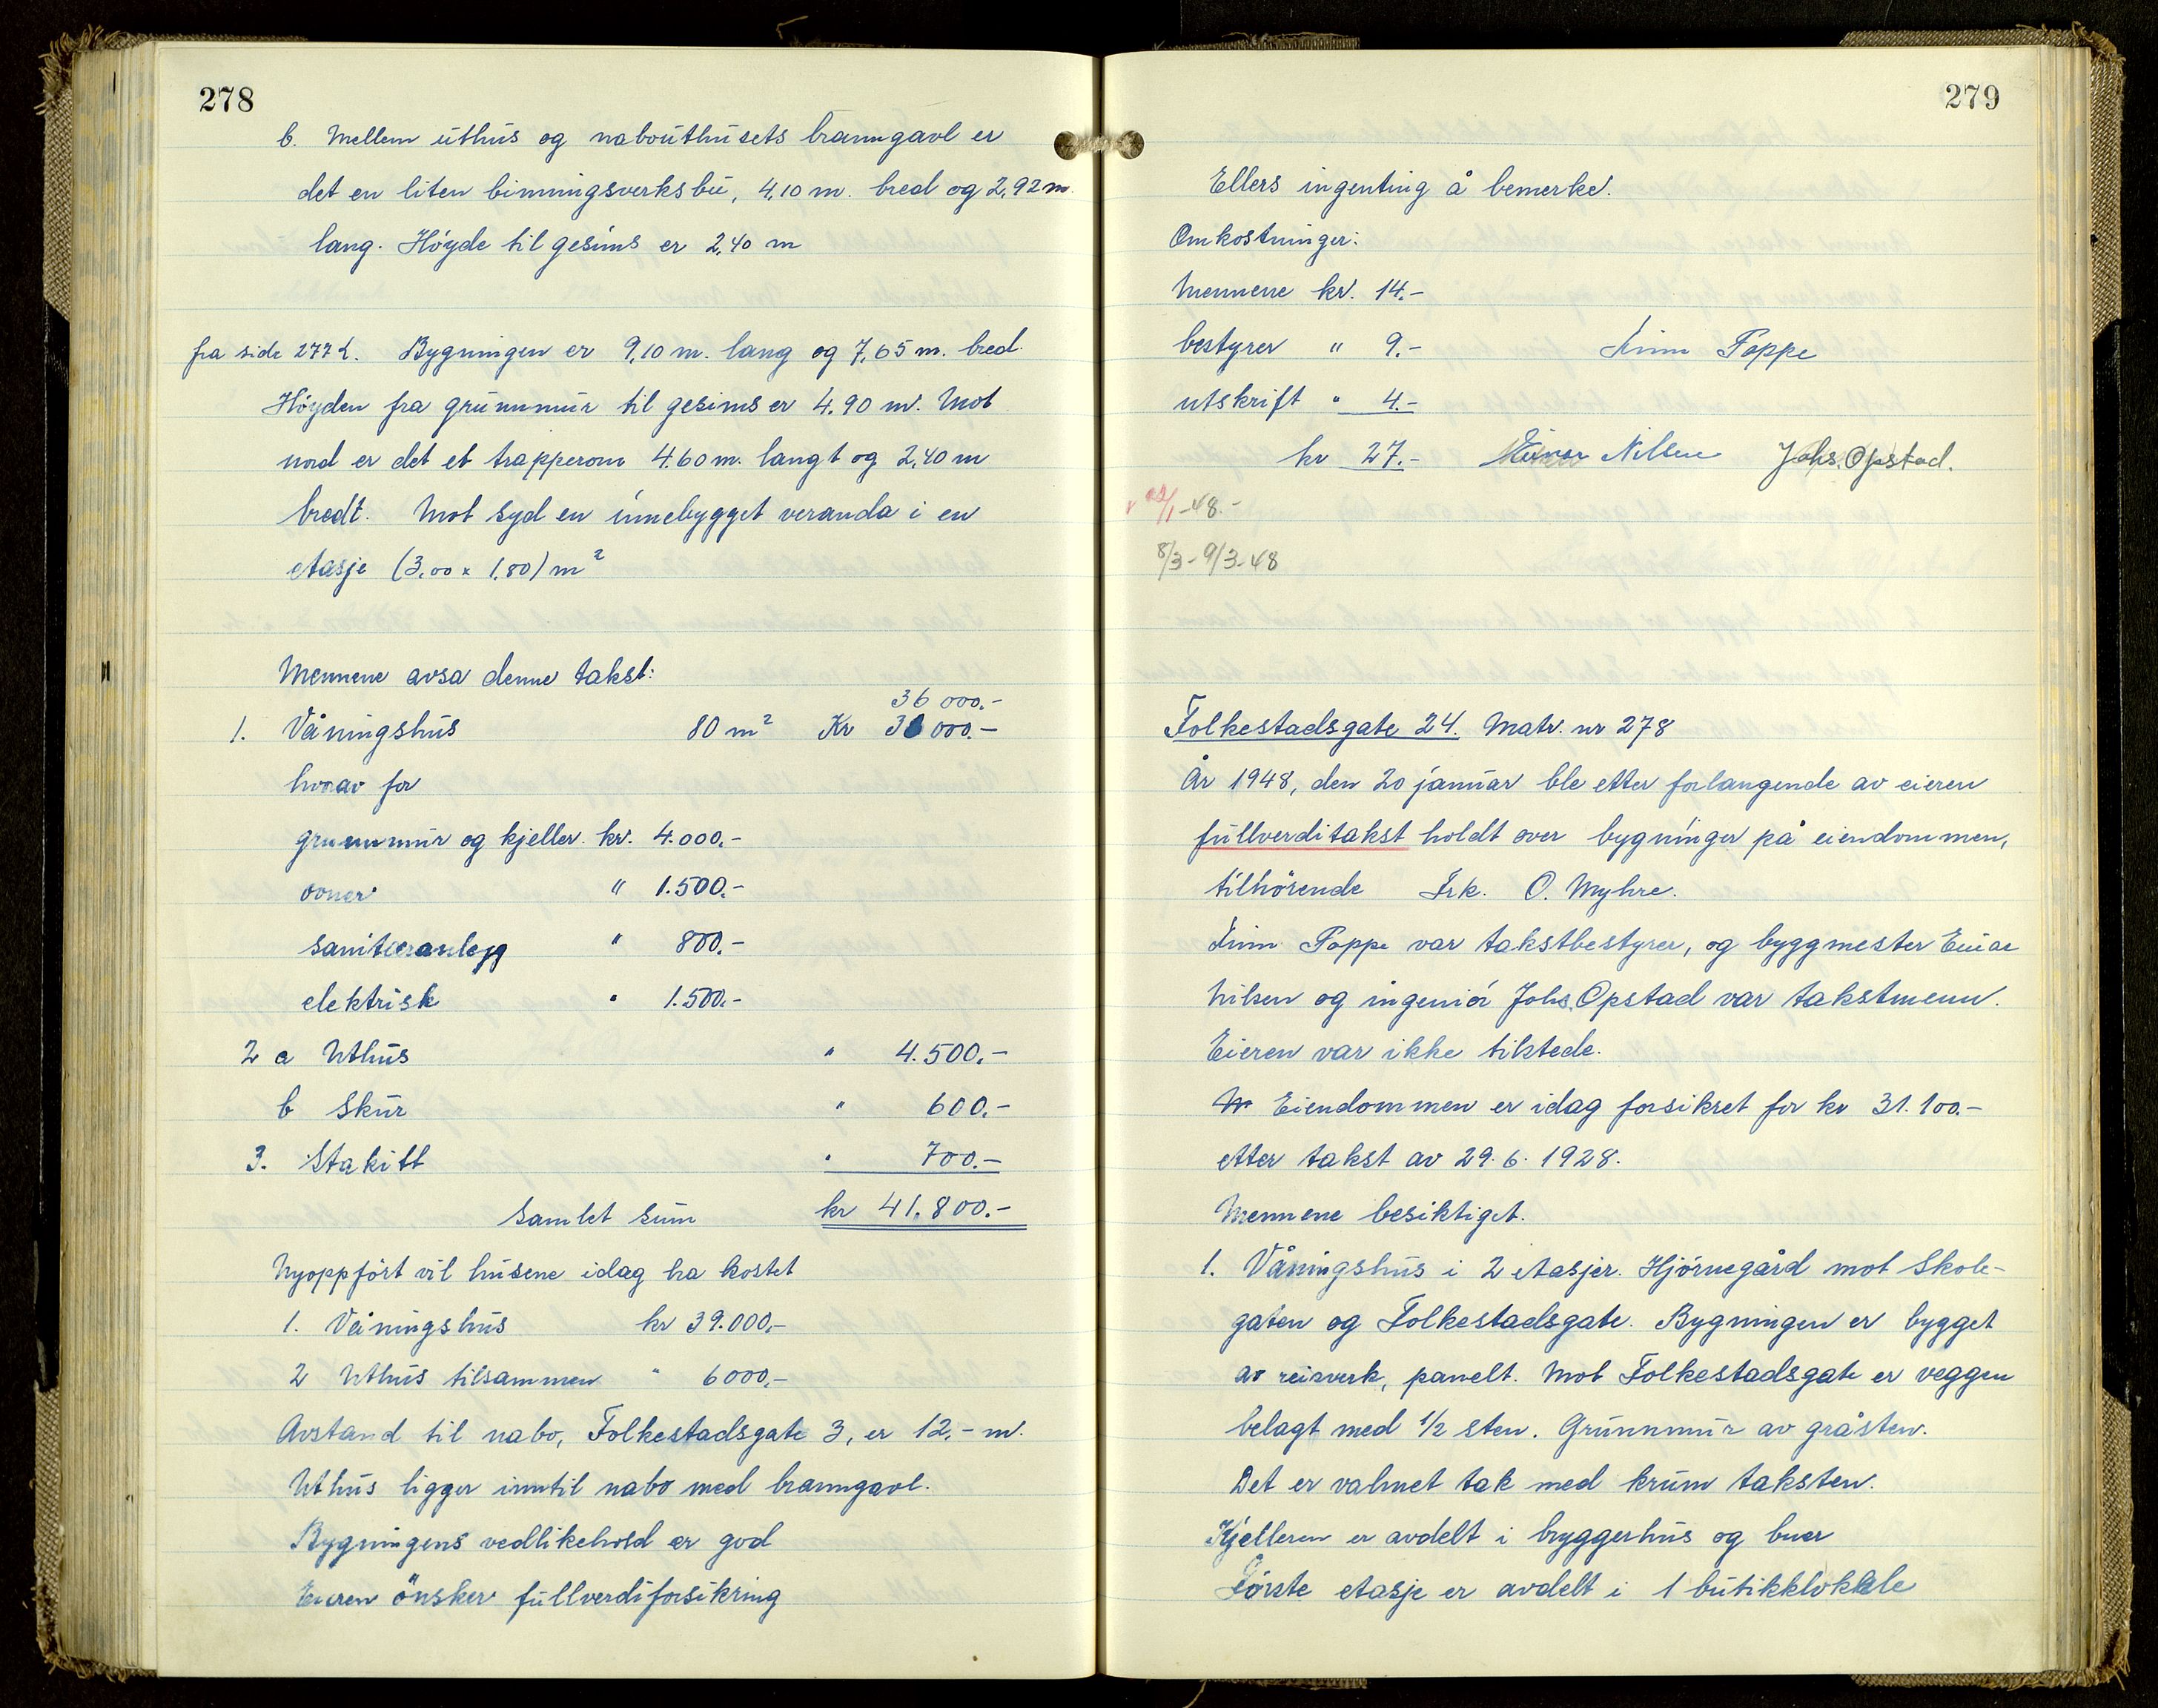 278
b. Mellem uthus og nabouthusets branngavl er
det en liten binningsverksbu, 4,10 m. bred og 2,92 m.
lang. Höyde til gesims er 2,40 m
fra side 277 1. Bygningen er 9,10 m. lang og 7,65 m. bred.
Höyden fra grunnmur til gesims er 4,90 m. Mot
nord er det et trapperom 4.60 m. langt og 2,40 m
bredt. Mot syd en innebygget veranda i en
etasje (3,00 x 1,80) m²
Mennene avsa denne takst:
36 000.-
1. Våningshus 80 m² Kr 36 000.-
hvorav for
grunnmur og kjeller. kr. 4.000.-
ovner " 1.500.-
sanitæranlegg " 800.-
elektrisk " 1.500.-
2 a Uthus " 4.500.-
b Skur " 600.-
3. Stakitt " 700.-
Samlet sum kr 41.800.-
Nyoppfört vil husene idag ha kostet
1. Våningshus kr 39.000,-
2 Uthus tilsammen " 6000,-
Avstand til nabo, Folkestadsgate 3, er 12,- m.
Uthus ligger inntil nabo med branngavl.
Bygningens vedlikehold er god
Eieren önsker fullverdiforsikring
279
Ellers ingenting å bemerke.
Omkostninger:
Mennene kr. 14.-
bestyrer " 9.- Finn Poppe
utskrift " 4.-
kr 27.- Einar Nilsen Johs. Opstad.
/1-48.-
8/3- 9/3-48
Folkestadsgate 24. Matr. nr 278
År 1948, den 20 januar ble etter forlangende av eieren
fullverditakst holdt over bygninger på eiendommen,
tilhörende Frk. O. Myhre.
Finn Poppe var takstbestyrer, og byggmester Einar
Nilsen og ingeniör Johs. Opstad var takstmenn.
Eieren var ikke tilstede.
Eiendommen er idag forsikret for kr 31.100.-
etter takst av 29.6.1928.
Mennene besiktiget.
1. Våningshus i 2 etasjer. Hjörnegård mot Skole-
gaten og Folkestadsgate. Bygningen er bygget
av reisverk, panelt. Mot Folkestadsgate er veggen
belagt med 1/2 sten. Grunnmur av gråsten.
Det er valmet tak med krum taksten.
Kjelleren er avdelt i bryggerhus og buer
Förste etasje er avdelt i 1 butikklokkale